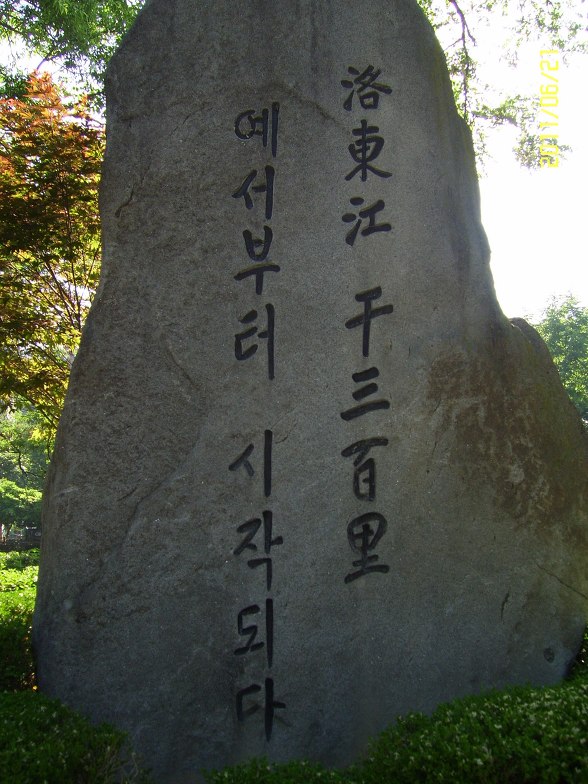 洛東江 千三百里
예서부터 시작되다
2011/06/27